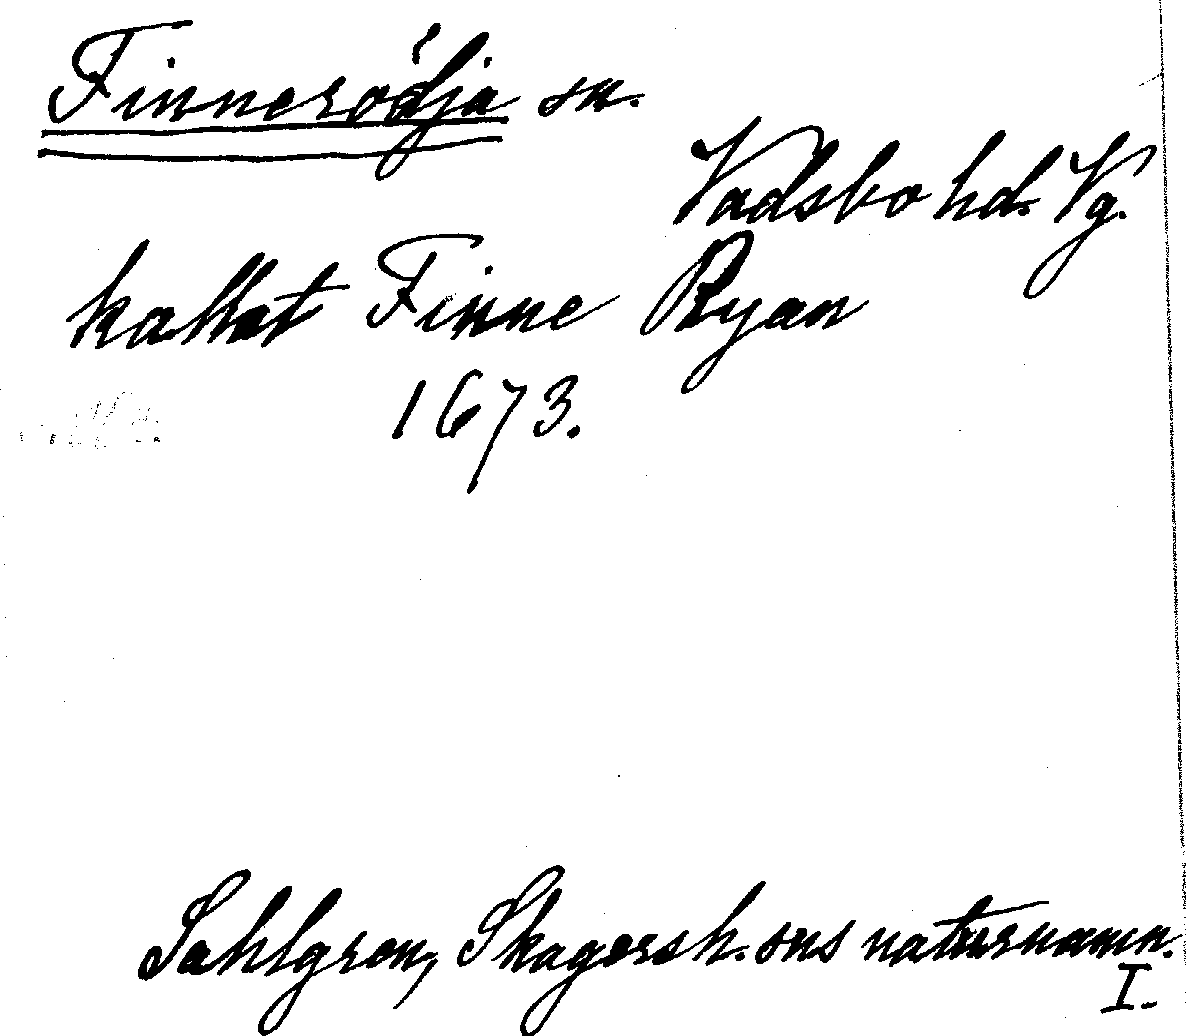 Finnerödja sn.
Vadsbo hd. Vg.
kallat Finne Ryan
1673.
Sahlgren, Skagersh. sns naturnamn.
I.